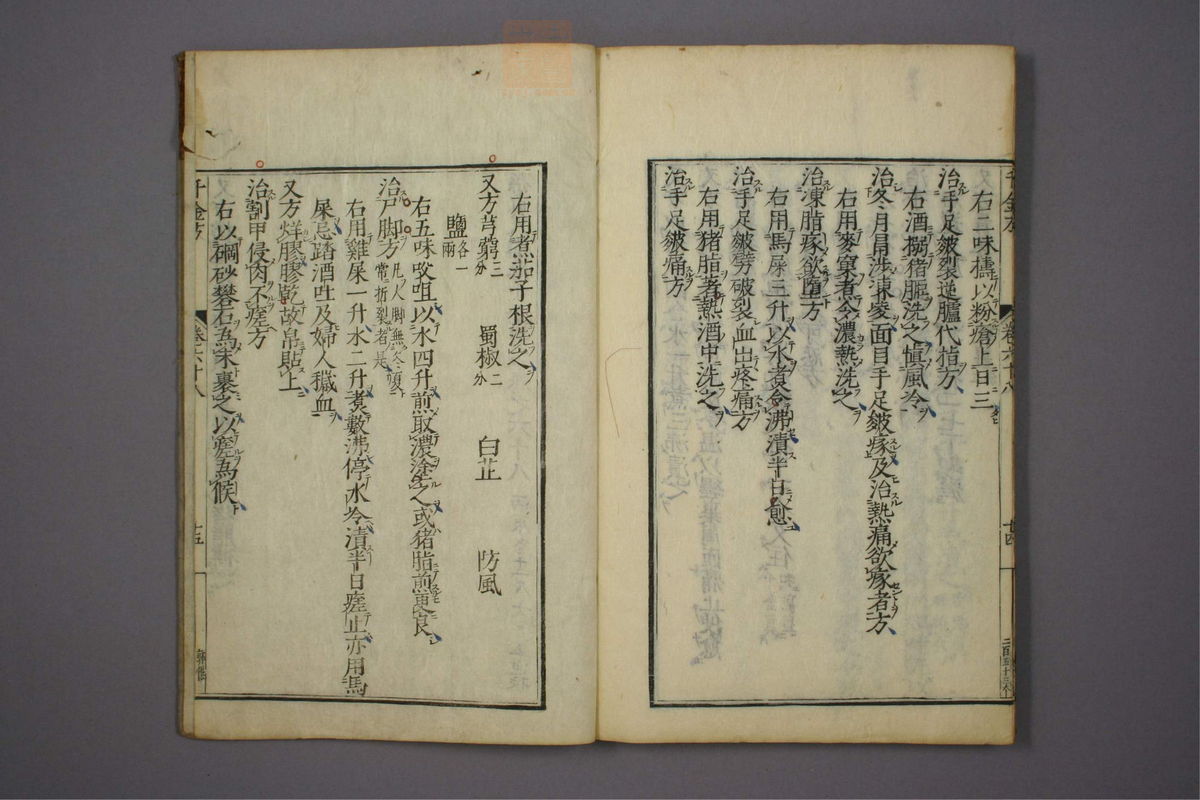 右二味擣以粉瘡上日三
治手足皴裂逆臚代指方
右酒搦猪胒洗之慎風冷
治冬月冒涉凍凌面目手足皴瘃及治熱痛欲瘃者方
右用麥窠煮令濃熱洗之
治凍脂瘃欲墮方
右用馬屎三升以水煮令沸漬半日愈
治手足皴劈破裂血出疼痛方
右用猪脂着熱酒中洗之
治手足皴痛方
千金方
卷六十八
廿四
右用煮茄子根洗之
又方芎藭三分 蜀椒二分 白芷 防風
鹽各一兩
右五味㕮咀以水四升煎取濃塗之或猪脂煎更良
治尸脚方凡人脚無冬夏常拆裂者是
右用雞屎一升水二升煮數沸停水冷漬半日瘥止亦用馬
屎忌踏酒吐及婦人穢血
又方烊膠膠乾故帛貼上
治割甲侵肉不瘥方
右以硇砂礬石爲末裹之以瘥爲候
千金方
卷六十八
十五